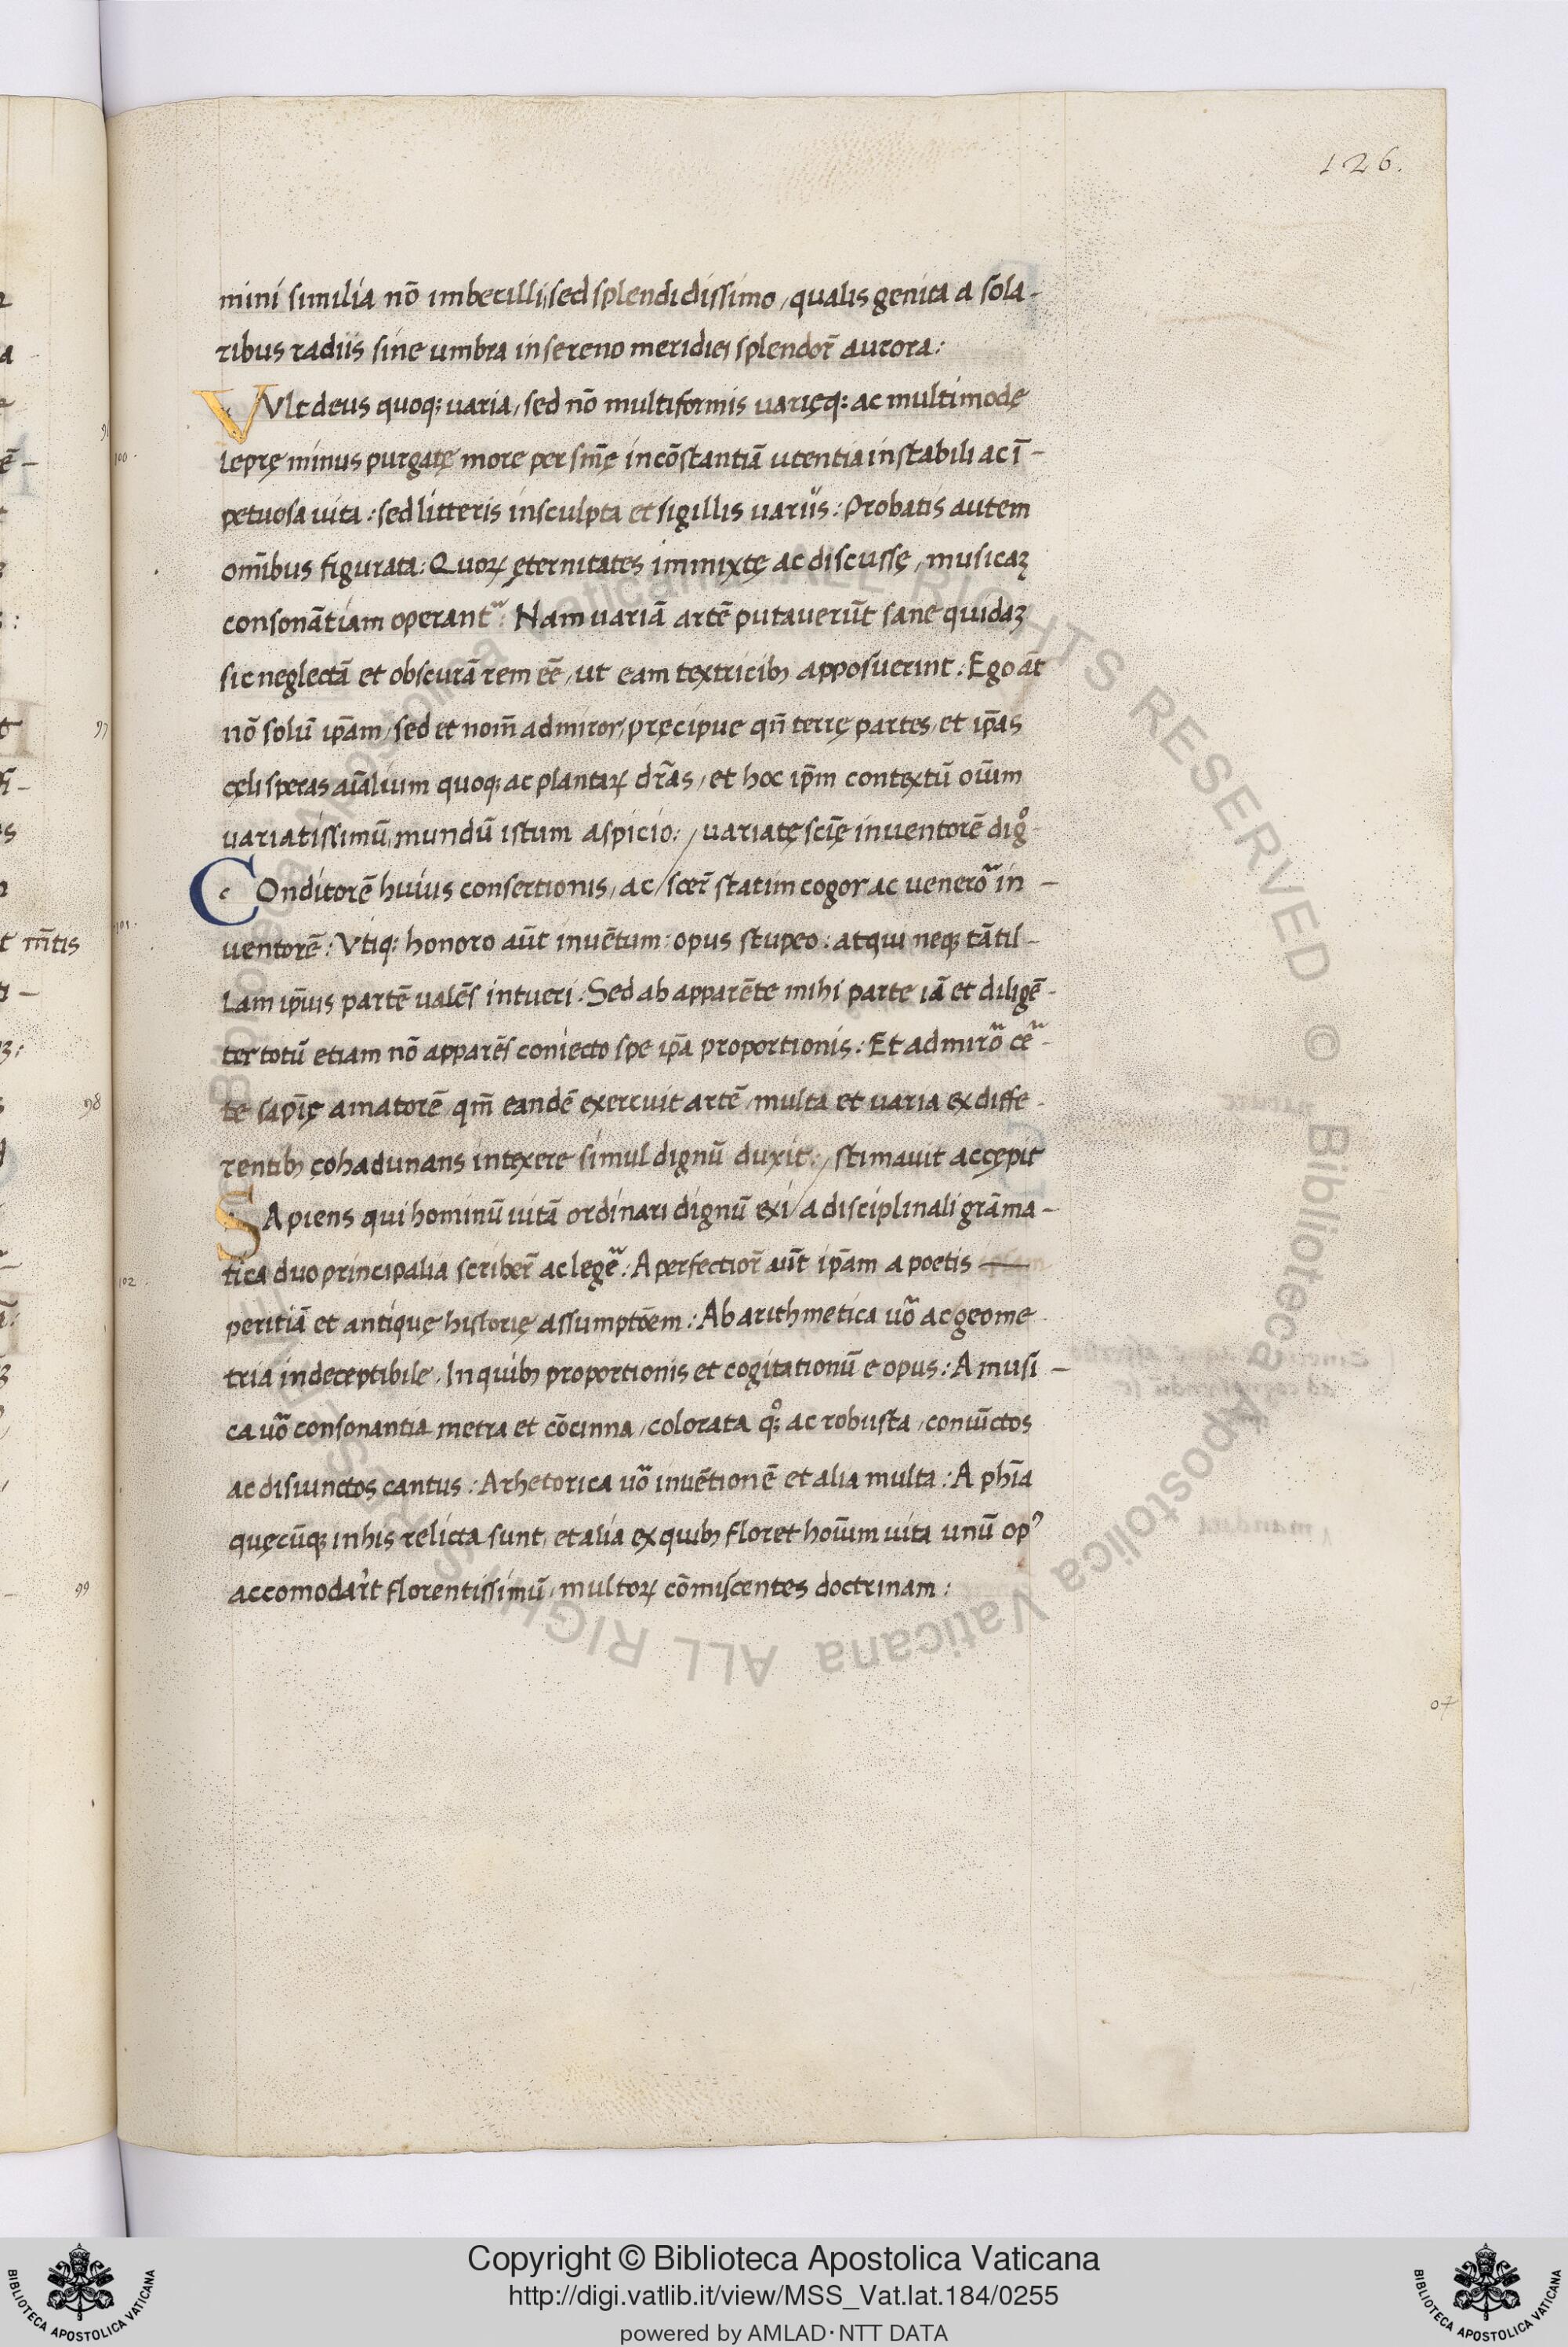 126.
mini similia nō imbecilli, sed splendidissimo, qualis genita a sola-
ribus radiis sine umbra in sereno meridiei splendor̄ aurora:
VVlt deus quoq; uaria, sed nō multiformis uarięq; ac multimodę
100.
leprę minus purgatę more per sm̄ę incōstantiā utentia instabili ac ī-
petuosa uita: sed litteris insculpta et sigillis uariis: Probatis autem
om̄ibus figurata: Quoꝝ ęternitates immixtę ac discussę, musicaȝ
consonātiam operant᷑: Nam uariā artē putauerūt sane quidaȝ
sic neglectā et obscurā rem eē, ut eam textricib; apposuerint. Ego āt
nō solū ip̄am, sed et nom̄ admiror, pręcipue qn̄ terrę partes, et ip̄as
cęli speras aīalium quoq; ac plantaꝝ dr̄as, et hoc ip̄m contextū oīum
uariatissimū mundū istum aspicio: / uariatę scīę inuentorē digͦ
COnditorē huius consertionis, ac / scer̄ statim cogor ac uenerō in-
101.
uentorē: Vtiq; honoro aūt inuētum: opus stupeo: atqui neq; tātil-
lam ip̄uis partē ualēs intueri. Sed ab apparēte mihi parte iā et diligē-
ter totū etiam nō apparēs coniecto spe ip̄a proportionis: Et admirō cē-
te sapīę amatorē, qm̄ eandē exercuit artē, multa et uaria ex diffe-
rentib; cohadunans intexere simul dignū duxit: / stimauit accępit
SApiens qui hominū uitā ordinari dignū exi / a disciplinali grāma-
102.
tica duo principalia scriber̄ ac legē: A perfectior̄ aūt ip̄am a poetis
peritiā et antiquę historię assumptōem: Ab arithmetica uō ac geome-
tria indeceptibile. In quib; proportionis et cogitationū e opus: A musi-
ca uō consonantia metra et cōcinna, colorata q;ͦ ac robusta, coniūctos
ac disiunctos cantus: A rhetorica uō inuētionē et alia multa: A phīa
quęcūq; in his relicta sunt, et alia ex quib; floret hoīum uita unū opꝰ
accomodar̄t florentissimū, multoꝝ cōmiscentes doctrinam:
97
98
99
07
Copyright © Biblioteca Apostolica Vaticana
http://digi.vatlib.it/view/MSS_Vat.lat.184/0255
powered by AMLAD·NTT DATA
BIBLIOTECA APOSTOLICA VATICANA
BIBLIOTECA APOSTOLICA VATICANA